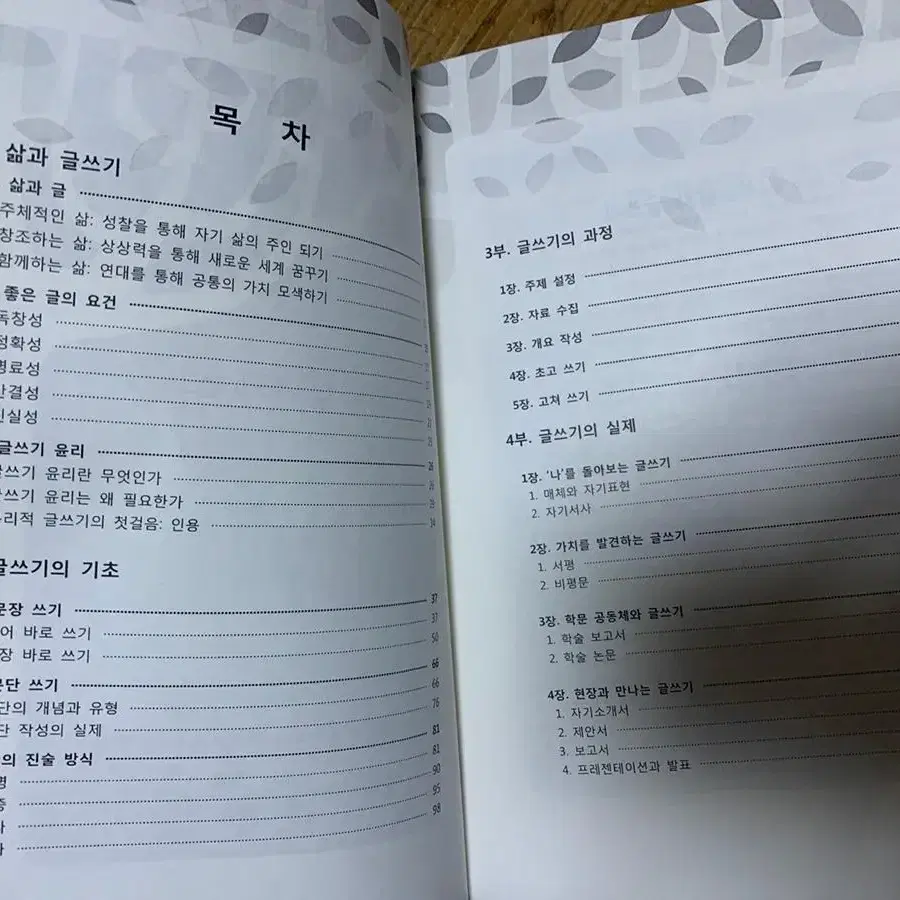 목 차
삶과 글쓰기
삶과 글
주체적인 삶: 성찰을 통해 자기 삶의 주인 되기
창조하는 삶: 상상력을 통해 새로운 세계 꿈꾸기
함께하는 삶: 연대를 통해 공통의 가치 모색하기
좋은 글의 요건
독창성
정확성
명료성
간결성
진실성
글쓰기 윤리 26
글쓰기 윤리란 무엇인가 26
글쓰기 윤리는 왜 필요한가 29
윤리적 글쓰기의 첫걸음: 인용 34
글쓰기의 기초
문장 쓰기 37
어 바로 쓰기 37
장 바로 쓰기 50
문단 쓰기 66
단의 개념과 유형 66
단 작성의 실제 76
의 진술 방식 81
명 81
증 90
사 95
사 98
3부. 글쓰기의 과정
1장. 주제 설정
2장. 자료 수집
3장. 개요 작성
4장. 초고 쓰기
5장. 고쳐 쓰기
4부. 글쓰기의 실제
1장. '나'를 돌아보는 글쓰기
1. 매체와 자기표현
2. 자기서사
2장. 가치를 발견하는 글쓰기
1. 서평
2. 비평문
3장. 학문 공동체와 글쓰기
1. 학술 보고서
2. 학술 논문
4장. 현장과 만나는 글쓰기
1. 자기소개서
2. 제안서
3. 보고서
4. 프레젠테이션과 발표